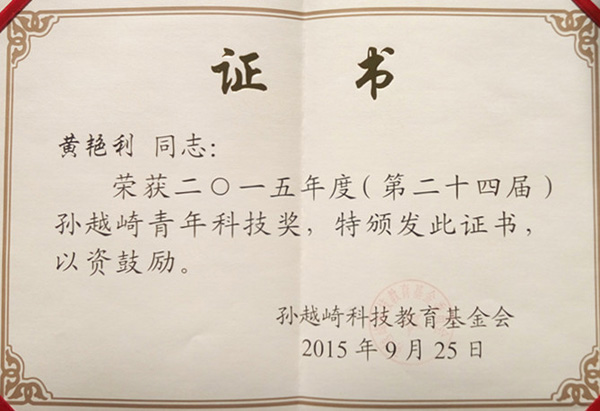 证 书
黄艳利 同志：
荣获二〇一五年度（第二十四届）
孙越崎青年科技奖，特颁发此证书，
以资鼓励。
孙越崎科技教育基金会
2015年9月25日